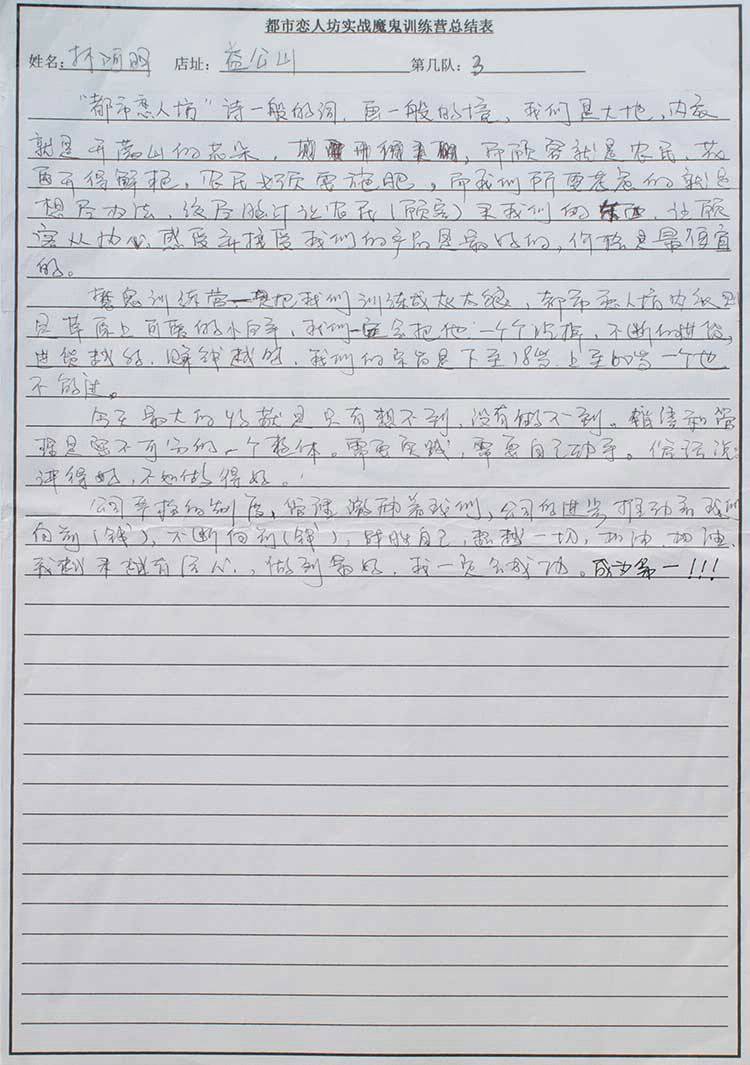 都市恋人坊实战魔鬼训练营总结表
姓名: 林阿明 店址: 益公山 第几队: 3
"都市恋人坊"诗一般的词,画一般的境,我们是大地,内衣
就是开满山的花朵,而顾客就是农民,花
要开得鲜艳,农民必须要施肥,而我们所要考虑的就是
想尽办法,绞尽脑汁让农民(顾客)来我们的东西,让顾
客从内心感受并接受我们的产品是最好的,价格是最便宜
的。
魔鬼训练营一定把我们训练成灰太狼,都市恋人坊内衣
是草原上可爱的小白羊,我们一定会把他一个个消掉,不断的进货,
进货越好,赚钱越好,我们的宗旨是下至18岁上至60岁一个也
不放过。
今天最大的收获是只有想不到,没有做不到。销售和管
理是密不可分的一个整体。需要实践,需要自己动手。俗话说:
讲得好,不如做得好。
公司平拉的制度,激励着我们,公司的进步推动着我们
向前(钱),不断向前(钱),战胜自己,超越一切,加油,加油,
我越来越有信心,做到最好,我一定会成功。成为第一!!!